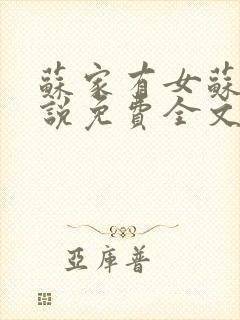 蘇家有女蘇
說免費全文
亞庫普